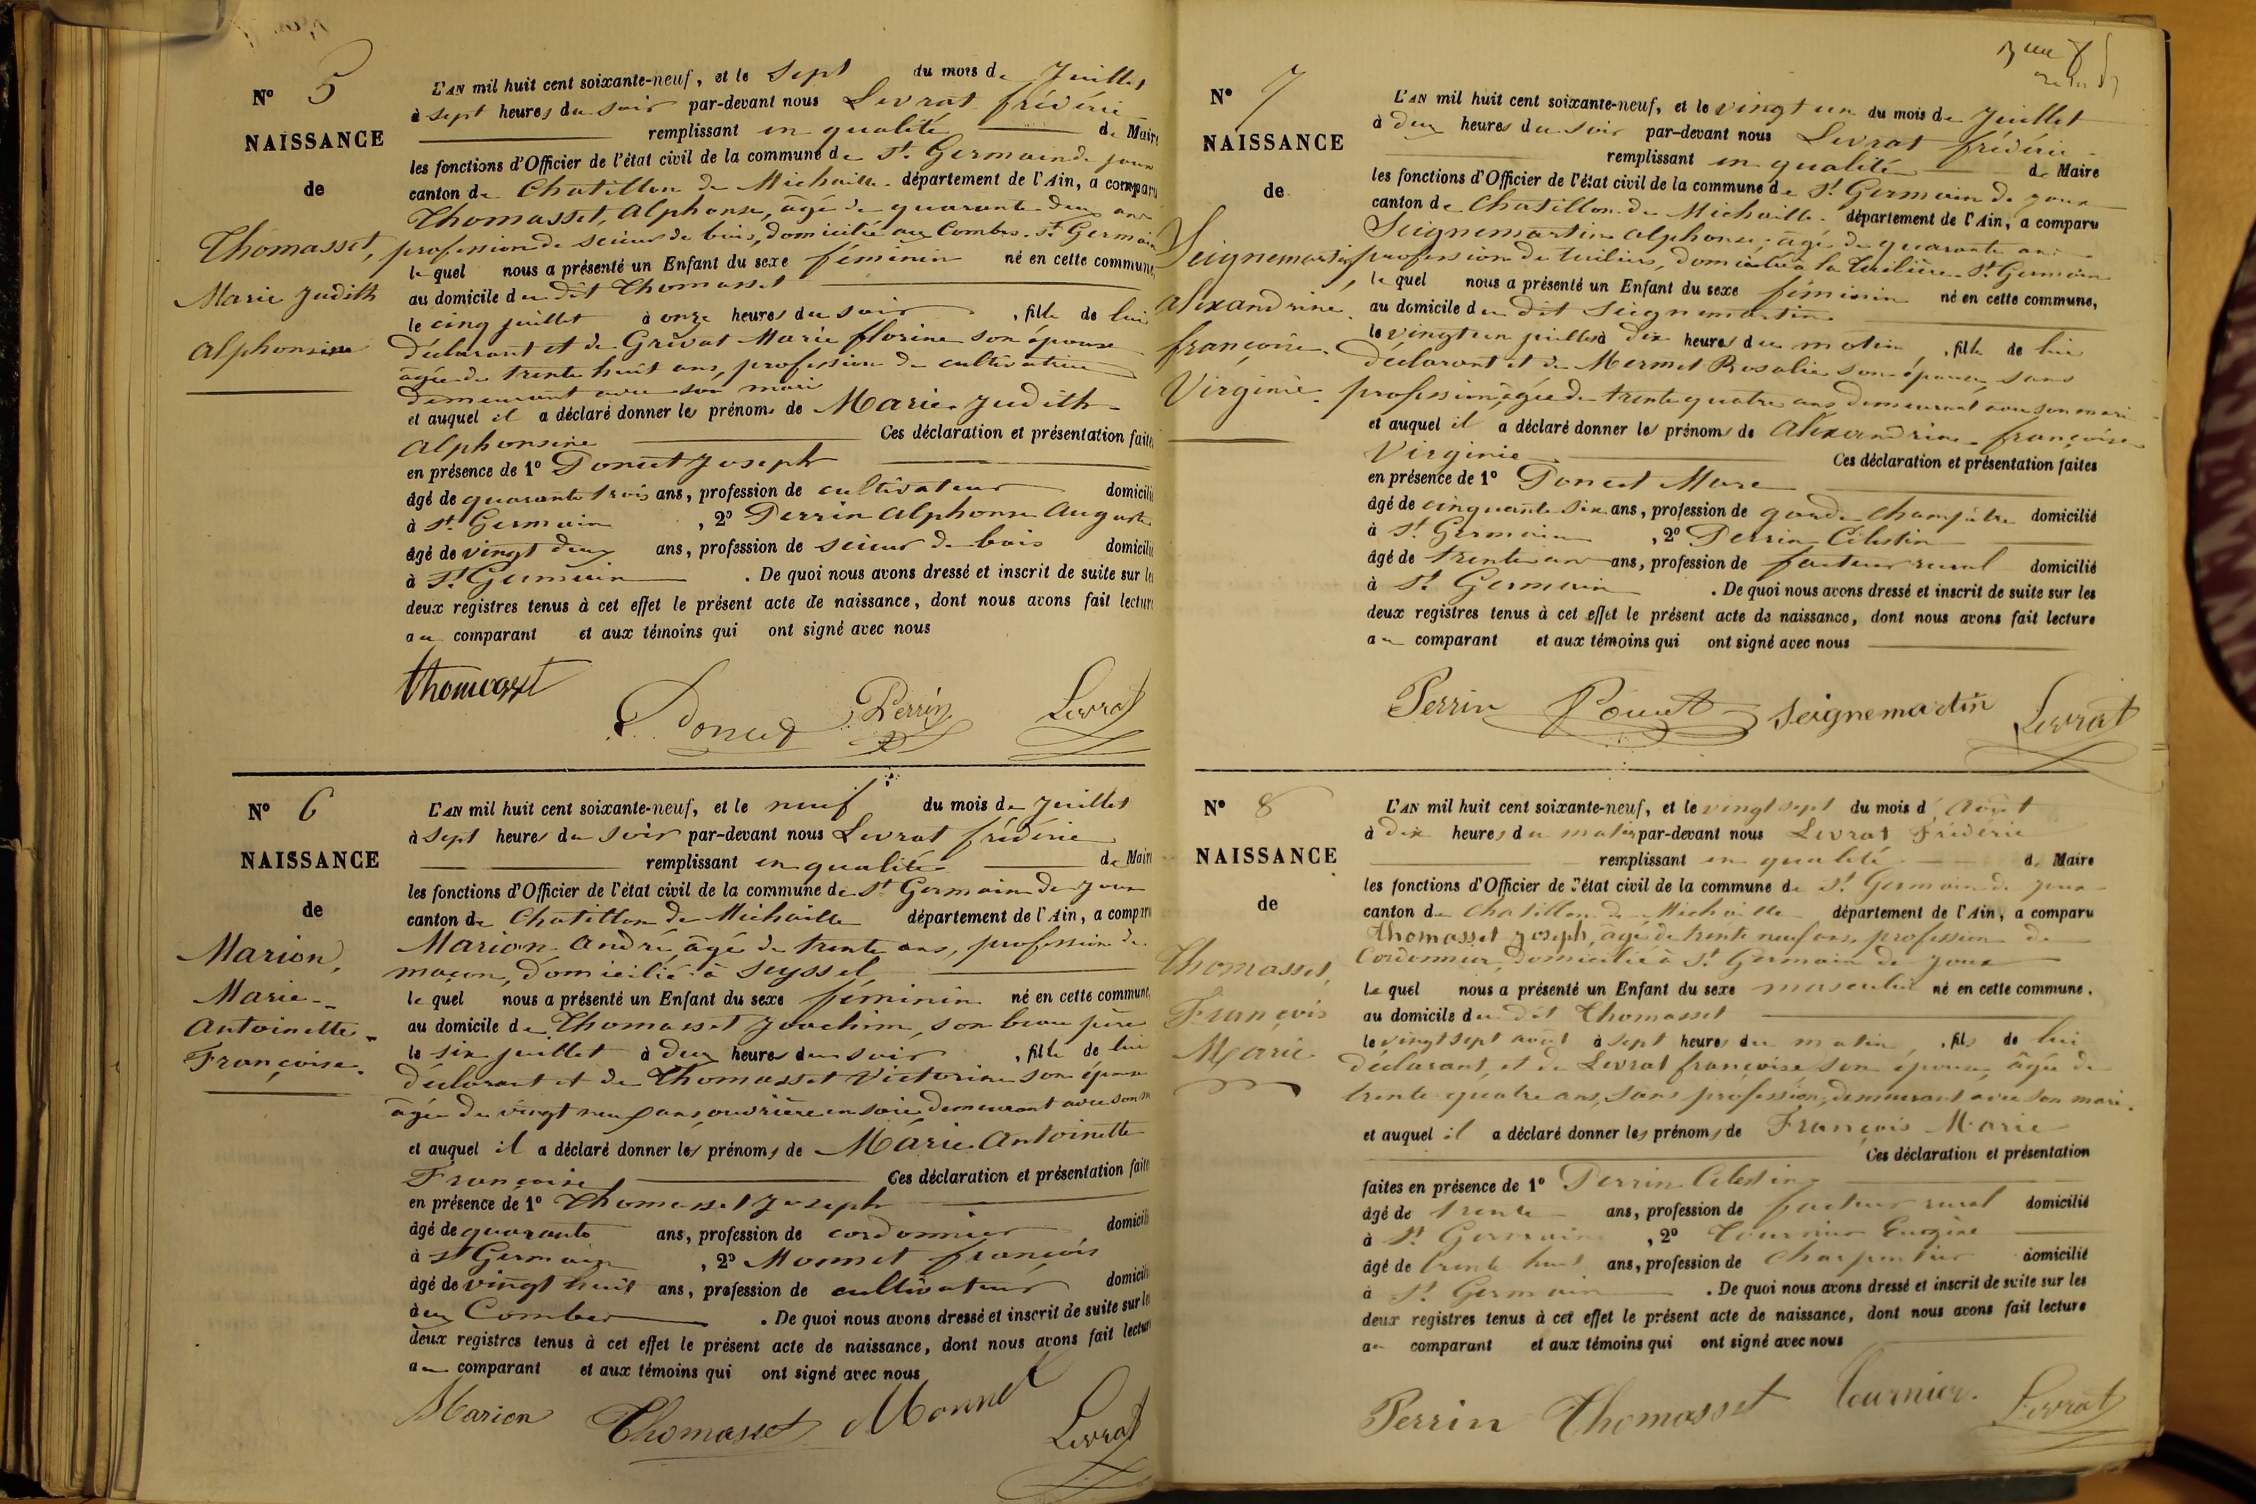 N° 5
NAISSANCE
de
Thomasset,
Marie Judith
Alphonsine
L'AN mil huit cent soixante-neuf, et le sept du mois de Juillet
à sept heures du soir par-devant nous Levrat frédéric
remplissant en qualité de Maire
les fonctions d'Officier de l'état civil de la commune de St. Germain de joux
canton de Chatillon de Michaille département de l'Ain, a comparu
Thomasset, Alphonse, âgé de quarante deux ans
profession de scieur de bois, domicilié aux Combes. St Germain
le quel nous a présenté un Enfant du sexe féminin né en cette commune,
au domicile du dit Thomasset
le cinq juillet à onze heures du soir, fille de lui
déclarant et de Grévat Marie florine son épouse
âgée de trente huit ans, profession de cultivatrice
demeurant avec son mari
et auquel il a déclaré donner les prénoms de Marie Judith
Alphonsine Ces déclaration et présentation faites
en présence de 1° Poncet Joseph
âgé de quarante trois ans, profession de cultivateur domicilié
à St. Germain, 2° Perrin Alphonse Auguste
âgé de vingt deux ans, profession de scieur de bois domicilié
à St Germain. De quoi nous avons dressé et inscrit de suite sur les
deux registres tenus à cet effet le présent acte de naissance, dont nous avons fait lecture
au comparant et aux témoins qui ont signé avec nous
Thomasset
Poncet Perrin Levrat
N° 6
NAISSANCE
de
Marion,
Marie
Antoinette
Françoise.
L'AN mil huit cent soixante-neuf, et le neuf du mois de juillet
à sept heures du soir par-devant nous Levrat frédéric
remplissant en qualité de Maire
les fonctions d'Officier de l'état civil de la commune de St Germain de joux
canton de Chatillon de Michaille département de l'Ain, a comparu
Marion André, âgé de trente ans, profession de
maçon, domicilié à Seyssel
le quel nous a présenté un Enfant du sexe féminin né en cette commune,
au domicile de Thomasset Joachim, son beau père
le six juillet à deux heures du soir, fille de lui
déclarant et de Thomasset Victorine son épouse
âgée de vingt neuf ans, ouvrière en soie, demeurant avec son m
et auquel il a déclaré donner les prénoms de Marie Antoinette
Françoise Ces déclaration et présentation faites
en présence de 1° Thomasset Joseph
âgé de quarante ans, profession de cordonnier, domicilié
à St Germain, 2° Monnet françois
âgé de vingt huit ans, profession de cultivateur domicilié
aux Combes. De quoi nous avons dressé et inscrit de suite sur les
deux registres tenus à cet effet le présent acte de naissance, dont nous avons fait lecture
au comparant et aux témoins qui ont signé avec nous
Marion Thomasset Monnet Levrat
N° 7
NAISSANCE
de
Seignemartin,
Alexandrine
françoise.
Virginie.
L'AN mil huit cent soixante-neuf, et le vingt un du mois de Juillet
à deux heures du soir par-devant nous Levrat frédéric
remplissant en qualité de Maire
les fonctions d'Officier de l'état civil de la commune de St Germain de joux
canton de Chatillon de Michaille. département de l'Ain, a comparu
Seignemartin Alphonse, âgé de quarante ans
profession de tuilier, domicilié à la tuilière St. Germain
le quel nous a présenté un Enfant du sexe féminin né en cette commune,
au domicile du dit Seignemartin
le vingt un juillet à dix heures du matin, fille de lui
déclarant et de Mermet Rosalie son épouse sans
profession, âgée de trente quatre ans demeurant avec son mari
et auquel il a déclaré donner les prénoms de Alexandrine françoise
Virginie Ces déclaration et présentation faites
en présence de 1° Poncet Marc
âgé de cinquante six ans, profession de garde champêtre domicilié
à St. Germain, 2° Perrin Célestin
âgé de trente ans, profession de facteur rural domicilié
à St. Germain. De quoi nous avons dressé et inscrit de suite sur les
deux registres tenus à cet effet le présent acte de naissance, dont nous avons fait lecture
au comparant et aux témoins qui ont signé avec nous
Perrin Poncet Seignemartin Levrat
N° 8
NAISSANCE
de
Thomasset,
François
Marie
L'AN mil huit cent soixante-neuf, et le vingt sept du mois d'Août
à dix heures du matin par-devant nous Levrat Frédéric
remplissant en qualité de Maire
les fonctions d'Officier de l'état civil de la commune de St Germain de joux
canton de Chatillon de Michaille département de l'Ain, a comparu
Thomasset Joseph, âgé de trente neuf ans, profession de
Cordonnier, domicilié à St. Germain de joux
le quel nous a présenté un Enfant du sexe masculin né en cette commune.
au domicile du dit Thomasset
le vingt sept août à sept heures du matin, fils de lui
déclarant, et de Levrat françoise son épouse, âgée de
trente quatre ans, sans profession, demeurant avec son mari.
et auquel il a déclaré donner les prénoms de François Marie
Ces déclaration et présentation
faites en présence de 1° Perrin Célestin
âgé de trente ans, profession de facteur rural domicilié
à St Germain, 2° Tournier Eugène
âgé de trente huit ans, profession de charpentier domicilié
à St. Germain. De quoi nous avons dressé et inscrit de suite sur les
deux registres tenus à cet effet le présent acte de naissance, dont nous avons fait lecture
au comparant et aux témoins qui ont signé avec nous
Perrin Thomasset Tournier Levrat